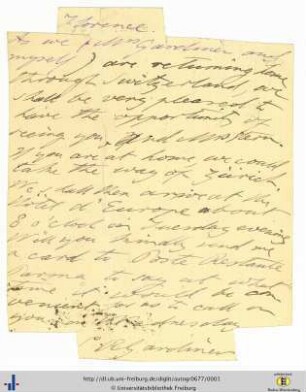 Florence.
As we (Mrs Gardiner and
myself) are returning home
through Switzerland, we
shall be very pleased to
have the opportunity of
seeing you and Mrs Stern
if you are at home we could
take the way of Zürich.
We shall then arrive at the
Hotel d'Europe about
8 o'clock on Tuesday evening
Will you kindly send me
a card to Poste Restante
Parma to say at what
time it would be con-
venient for us to call on
you on Wednesday
Gardiner
http://dl.ub.uni-freiburg.de/diglit/autogr0677/0001
© Universitätsbibliothek Freiburg